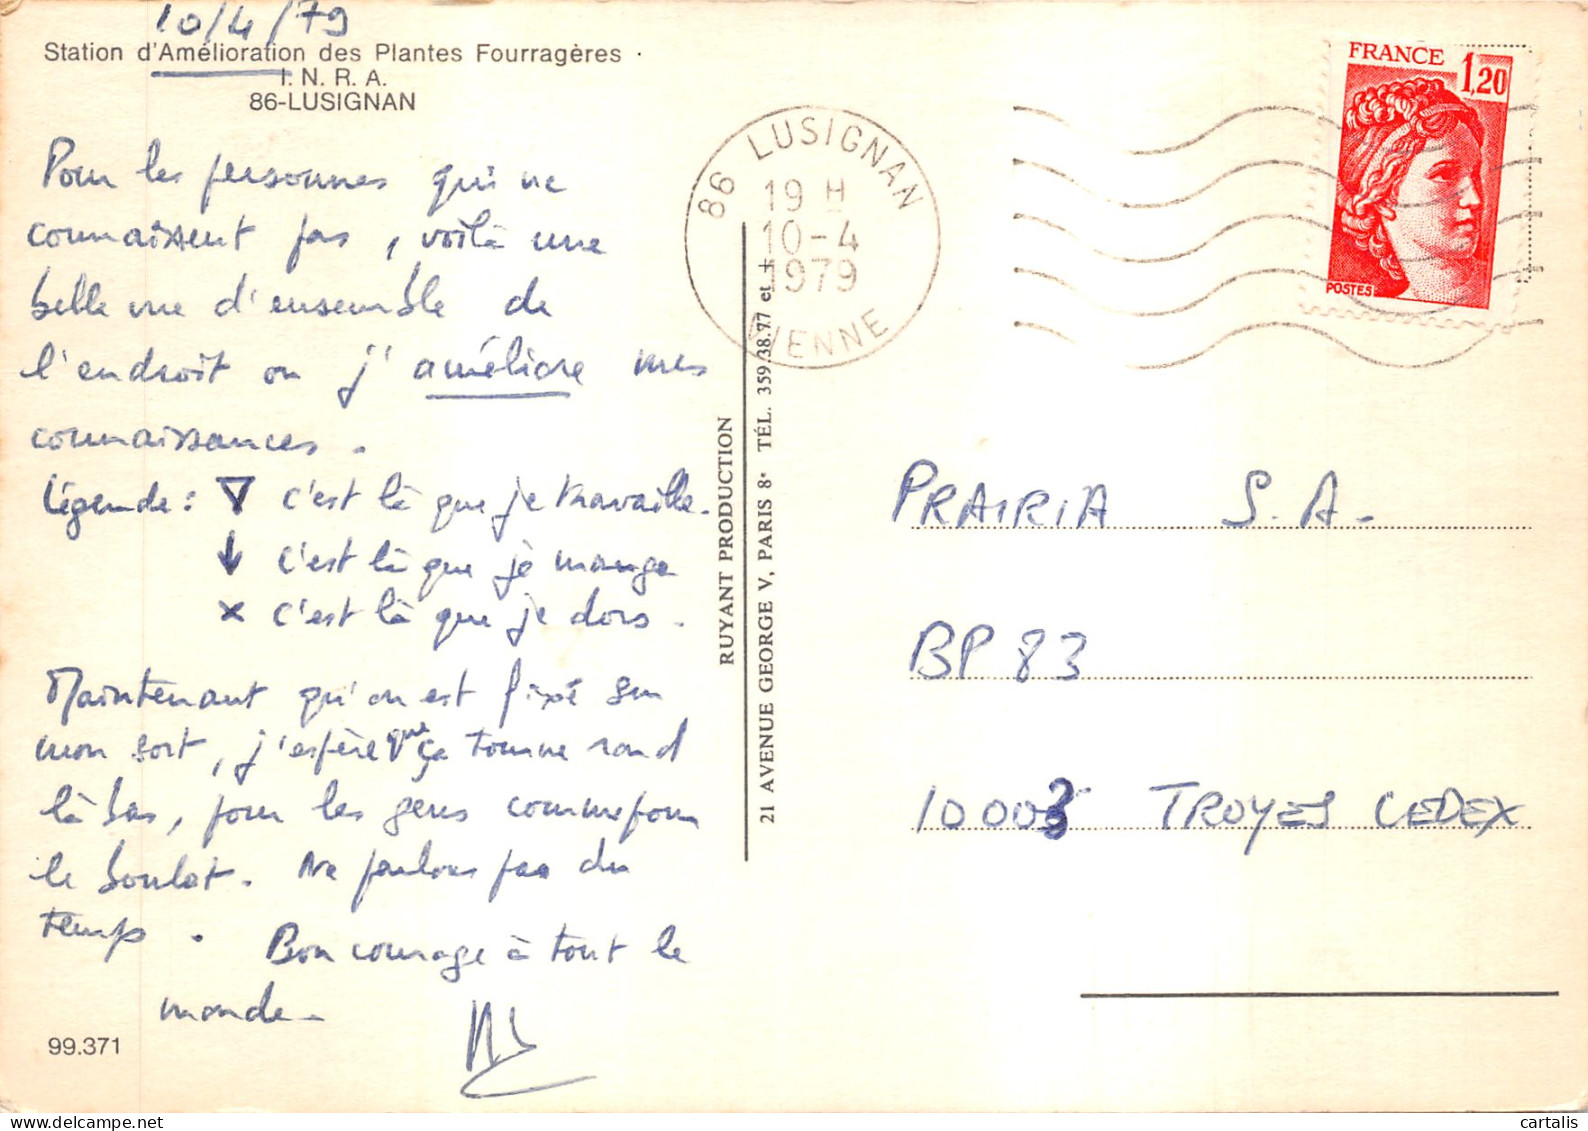 10/4/79
Station d'Amélioration des Plantes Fourragères
I. N. R. A.
86-LUSIGNAN
Pour les personnes qui ne
connaissent pas, voilà une
belle vue d'ensemble de
l'endroit où j'améliore mes
connaissances.
Légende : ∇ c'est là que je travaille.
↓ c'est là que je mange
x c'est là que je dors.
Maintenant qu'on est fixé sur
mon sort, j'espère que ça tourne rond
là bas, pour les gens comme pour
le boulot. Ne parlons pas du
temps.
Bon courage à tout le
monde.
99.371
RUYANT PRODUCTION
21 AVENUE GEORGE V, PARIS 8e TÉL. 359.38.77 et +
86 LUSIGNAN
19 H
10-4
1979
VIENNE
FRANCE
1,20
POSTES
PRAIRIA S.A.
BP 83
10003 TROYES CEDEX
cartalis